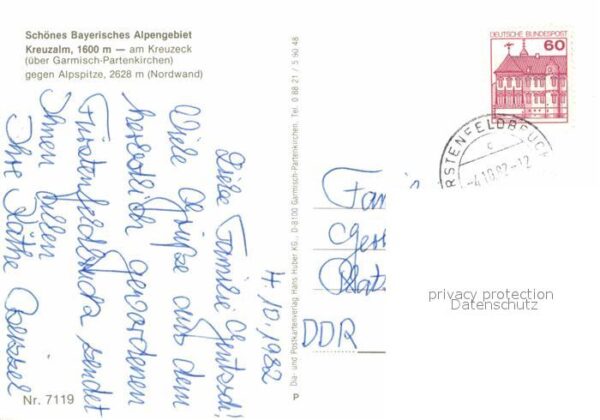 Schönes Bayerisches Alpengebiet
Kreuzalm, 1600 m — am Kreuzeck
(über Garmisch-Partenkirchen)
gegen Alpspitze, 2628 m (Nordwand)
4.10.1982
Liebe Familie
Viele Grüße aus dem
herbstlich gewordenen
Fürstenfeldbruck sendet
Ihnen allen
Ihre Käthe
Nr. 7119
Dia- und Postkartenverlag Hans Huber KG., D-8100 Garmisch-Partenkirchen, Tel. 0 88 21 / 5 90 48
P
DEUTSCHE BUNDESPOST
60
RSTENFELDBRUCK
c
-4.10.82-12
Fam
DDR
privacy protection
Datenschutz